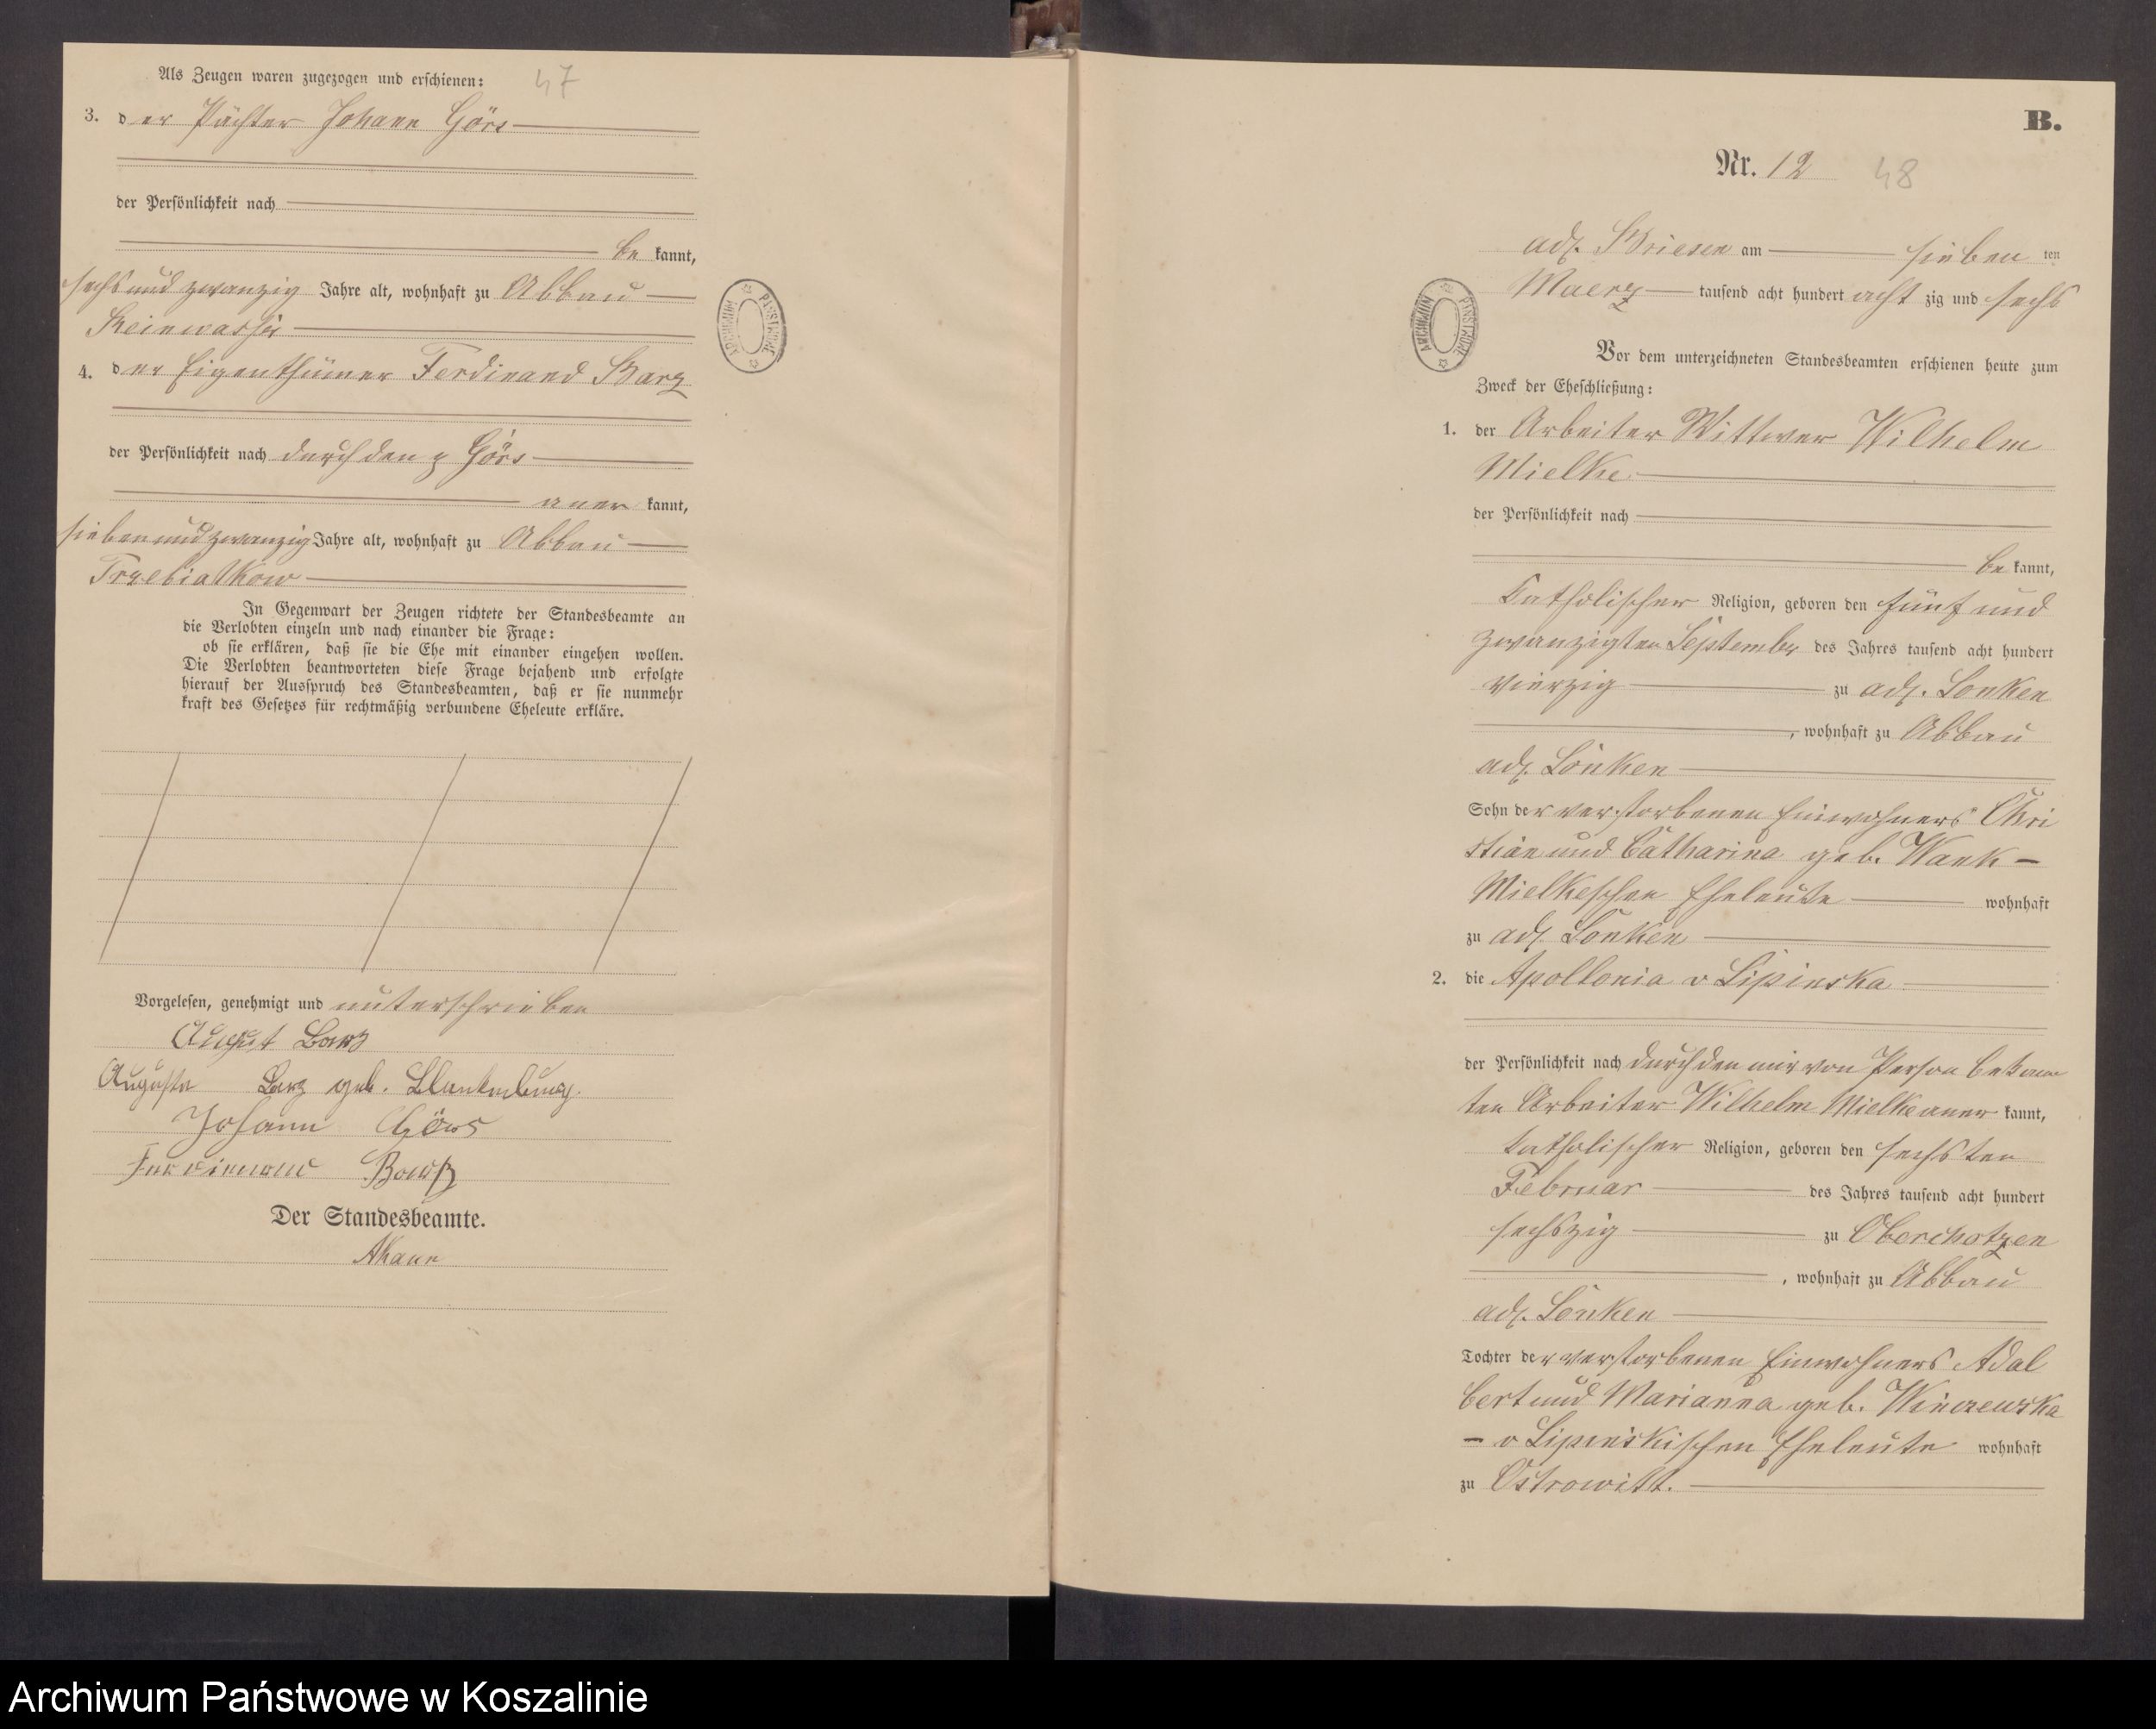 Als Zeugen waren zugezogen und erschienen:
47
3. der Pächter Johann Görs
der Persönlichkeit nach
be kannt,
sechs und zwanzig Jahre alt, wohnhaft zu Abbau
Reinwasser
4. der Eigenthümer Ferdinand Barz
der Persönlichkeit nach durch den p Görs
aner kannt,
sieben und zwanzig Jahre alt, wohnhaft zu Abbau
Trzebiatkow
In Gegenwart der Zeugen richtete der Standesbeamte an
die Verlobten einzeln und nach einander die Frage:
ob sie erklären, daß sie die Ehe mit einander eingehen wollen.
Die Verlobten beantworteten diese Frage bejahend und erfolgte
hierauf der Ausspruch des Standesbeamten, daß er sie nunmehr
kraft des Gesetzes für rechtmäßig verbundene Eheleute erkläre.
Vorgelesen, genehmigt und unterschrieben
August Barz
Auguste Barz geb. Blankenburg.
Johann Görs
Ferdinand Barz
Der Standesbeamte.
ARCHIWUM PAŃSTWOWE
B.
Nr. 12
48
adl. Briesen am sieben ten
Maerz tausend acht hundert acht zig und sechs
ARCHIWUM PAŃSTWOWE
Vor dem unterzeichneten Standesbeamten erschienen heute zum
Zweck der Eheschließung:
1. der Arbeiter Wittwer Wilhelm
Mielke
der Persönlichkeit nach
be kannt,
katholischer Religion, geboren den fünf und
zwanzigsten September des Jahres tausend acht hundert
vierzig zu adl. Lonken
, wohnhaft zu Abbau
adl. Lonken
Sohn der verstorbenen Einwohners Chri
stian und Catharina geb. Wank –
Mielkeschen Eheleute wohnhaft
zu adl. Lonken
2. die Apollonia v Lipinska
der Persönlichkeit nach durch den mir von Person bekann
ten Arbeiter Wilhelm Mielke aner kannt,
katholischer Religion, geboren den sechsten
Februar des Jahres tausend acht hundert
sechszig zu Oberchotzen
, wohnhaft zu Abbau
adl. Lonken
Tochter der verstorbenen Einwohners Adal
bert und Marianna geb. Winczewska
– v Lipinskischen Eheleute wohnhaft
zu Ostrowitt.
Archiwum Państwowe w Koszalinie